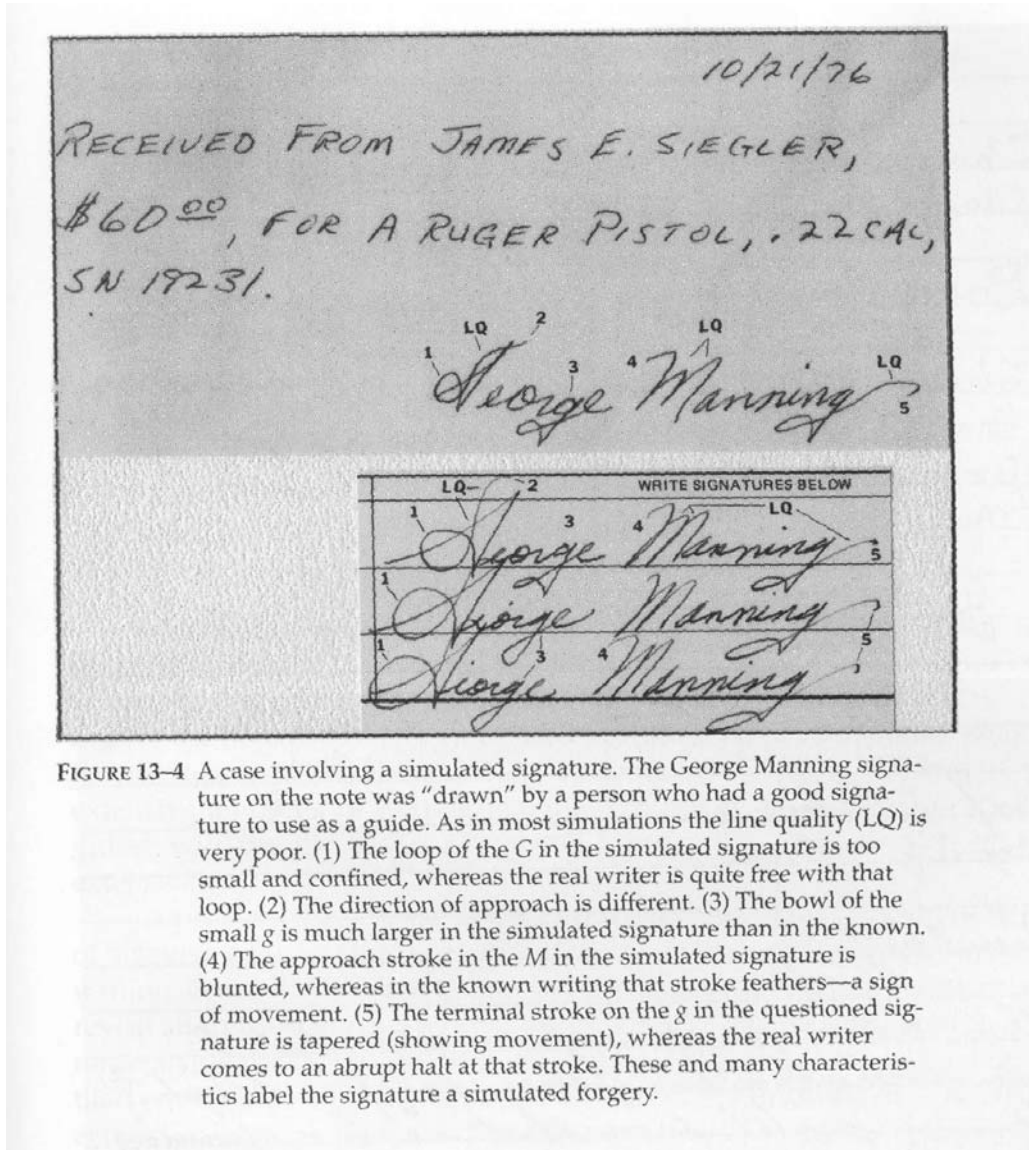 10/21/76
RECEIVED FROM JAMES E. SIEGLER,
$60 00, FOR A RUGER PISTOL, .22 CAL,
SN 19231.
LQ 2 LQ
1 3 4 LQ
George Manning 5
LQ 2 WRITE SIGNATURES BELOW
1 3 4 LQ
George Manning 5
1
George Manning 5
1 3 4
George Manning
FIGURE 13–4 A case involving a simulated signature. The George Manning signa-
ture on the note was "drawn" by a person who had a good signa-
ture to use as a guide. As in most simulations the line quality (LQ) is
very poor. (1) The loop of the G in the simulated signature is too
small and confined, whereas the real writer is quite free with that
loop. (2) The direction of approach is different. (3) The bowl of the
small g is much larger in the simulated signature than in the known.
(4) The approach stroke in the M in the simulated signature is
blunted, whereas in the known writing that stroke feathers—a sign
of movement. (5) The terminal stroke on the g in the questioned sig-
nature is tapered (showing movement), whereas the real writer
comes to an abrupt halt at that stroke. These and many characteris-
tics label the signature a simulated forgery.